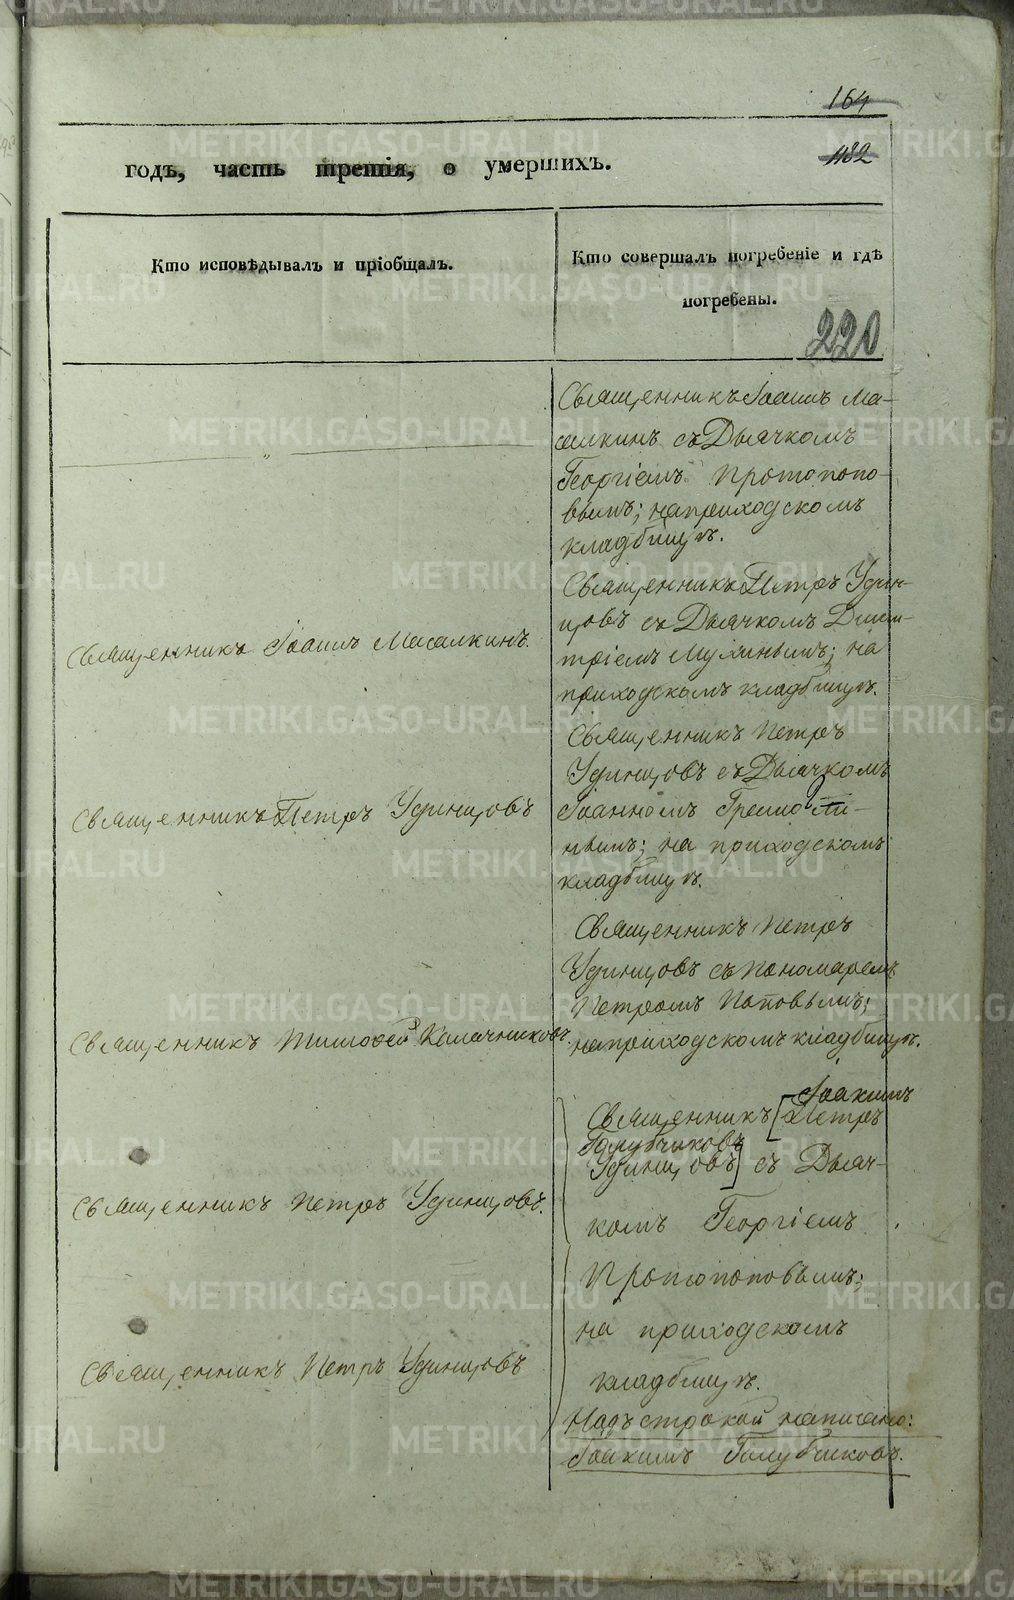 164
1182
годъ, часть третія, о умершихъ.
Кто исповѣдывалъ и пріобщалъ.
Кто совершалъ погребеніе и гдѣ
погребены.
220
Священникъ Іоаннъ Ма-
салкинъ съ Дьячкомъ
Георгіемъ Протопопо-
вымъ; на приходскомъ
кладбищѣ.
Священникъ Іоаннъ Масалкинъ.
Священникъ Петръ Удин-
цовъ съ Дьячкомъ Дими-
тріемъ Мухинымъ; на
приходскомъ кладбищѣ.
Священникъ Петръ Удинцовъ
Священникъ Петръ
Удинцовъ съ Дьячкомъ
Іоанномъ
нымъ; на приходскомъ
кладбищѣ.
Священникъ Тимофей Калачниковъ.
Священникъ Петръ
Удинцовъ съ Пономаремъ
Петромъ Поповымъ;
на приходскомъ кладбищѣ.
Священникъ Петръ Удинцовъ.
Іоакимъ
Священникъ [Петръ
Голубчиковъ
Удинцовъ] съ Дьяч-
комъ Георгіемъ
Протопоповымъ;
на приходскомъ
кладбищѣ.
Священникъ Петръ Удинцовъ
Надъ строкой написано:
Іоакимъ Голубчиковъ.
METRIKI.GASO-URAL.RU